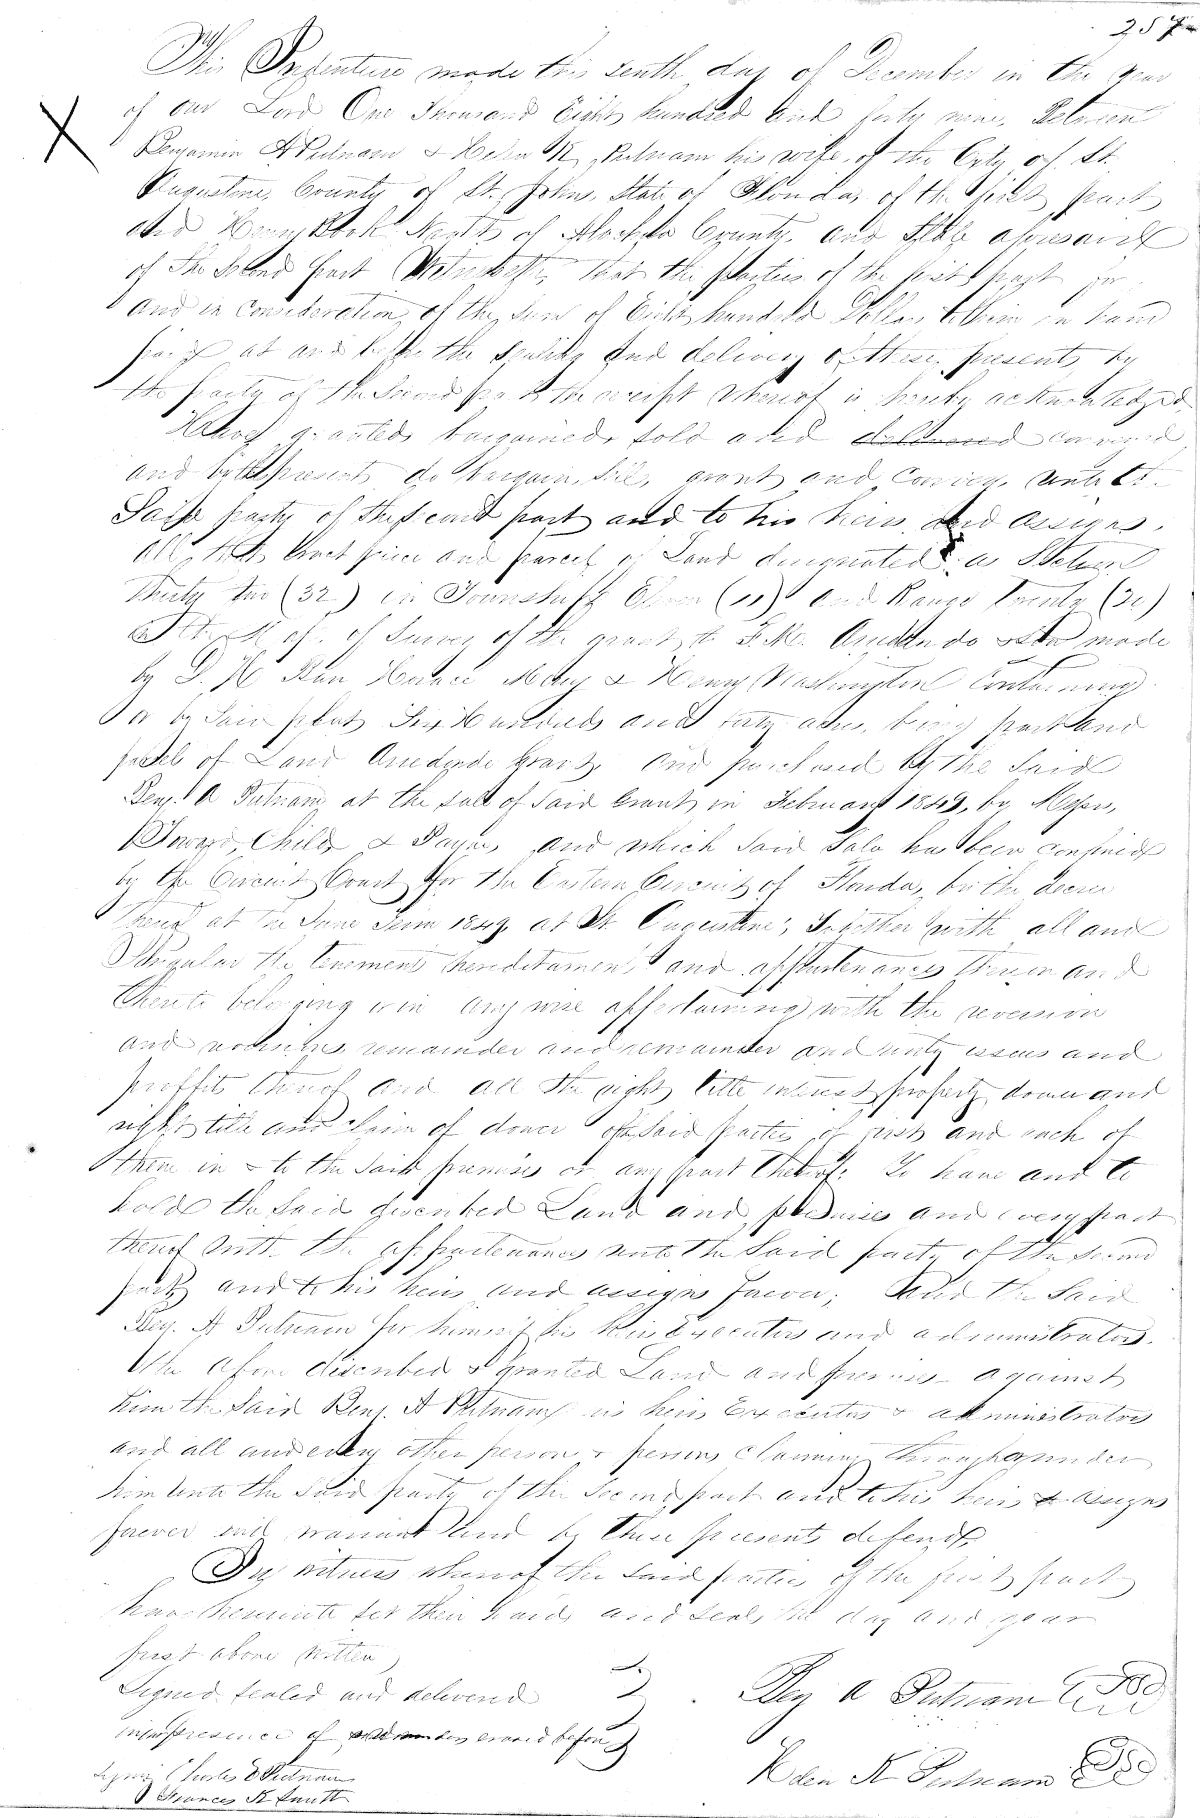 257
This Indenture made this tenth day of December in the year
of our Lord One Thousand Eight hundred and forty nine, Between
Benjamin A Putnam & Helen K. Putnam his wife, of the City of St.
Augustine, County of St. Johns, State of Florida, of the first part
and Henry of Alachua County, and State aforesaid
of the Second part Witnesseth, that the parties of the first part for
and in consideration of the sum of Eight hundred Dollars to him in hand
paid at and before the sealing and delivery of these presents, by
the party of the Second part the receipt whereof is hereby acknowledged
Have granted, bargained, sold and delivered conveyed
and by these presents do bargain, sell, grant and convey, unto the
Said party of the Second part and to his heirs and assigns,
all that tract piece and parcel of Land designated as Section
Thirty two (32) in Township Eleven (11) and Range Twenty (20)
of Survey of the grant to F. M. Arredondo & Son made
by D. H Burr Horace & Henry Washington Containing
by said plat Six Hundred and forty acres, being part and
parcel of Land Arredondo Grant, and purchased by the Said
Benj. A Putnam at the sale of said Grant, in February 1849, by Myers,
Child, & Payne, and which said Sale has been confirmed
by the Circuit Court for the Eastern Circuit of Florida, by the decree
thereof at the June Term 1849 at St. Augustine; Together with all and
Singular the tenements hereditaments and appurtenances therein and
thereto belonging or in any wise appertaining with the reversion
and reversions remainder and remainder and rents issues and
proffits thereof and all the right title interest property dower and
right title and claim of dower of said parties of first and each of
them in & to the said premises or any part thereof: To have and to
hold the said described Land and premises and every part
thereof with the appurtenances unto the Said party of the second
part and to his heirs and assigns forever; And the Said
Benj. A Putnam for himself his heirs Executors and administrators.
the afore described & granted Land and premises against
him the Said Benj. A Putnam his heirs Executors & administrators
and all and every other person & persons claiming through or under
him unto the said party of the second part and to his heirs & assigns
forever will warrant and by these presents defend,
In witness whereof the said parties of the first part
have hereunto set their hands and seals the day and year
first above written
Signed sealed and delivered
in presence of erased before
Charles D Putnam
Frances K Smith
Benj A Putnam
Helen K Putnam